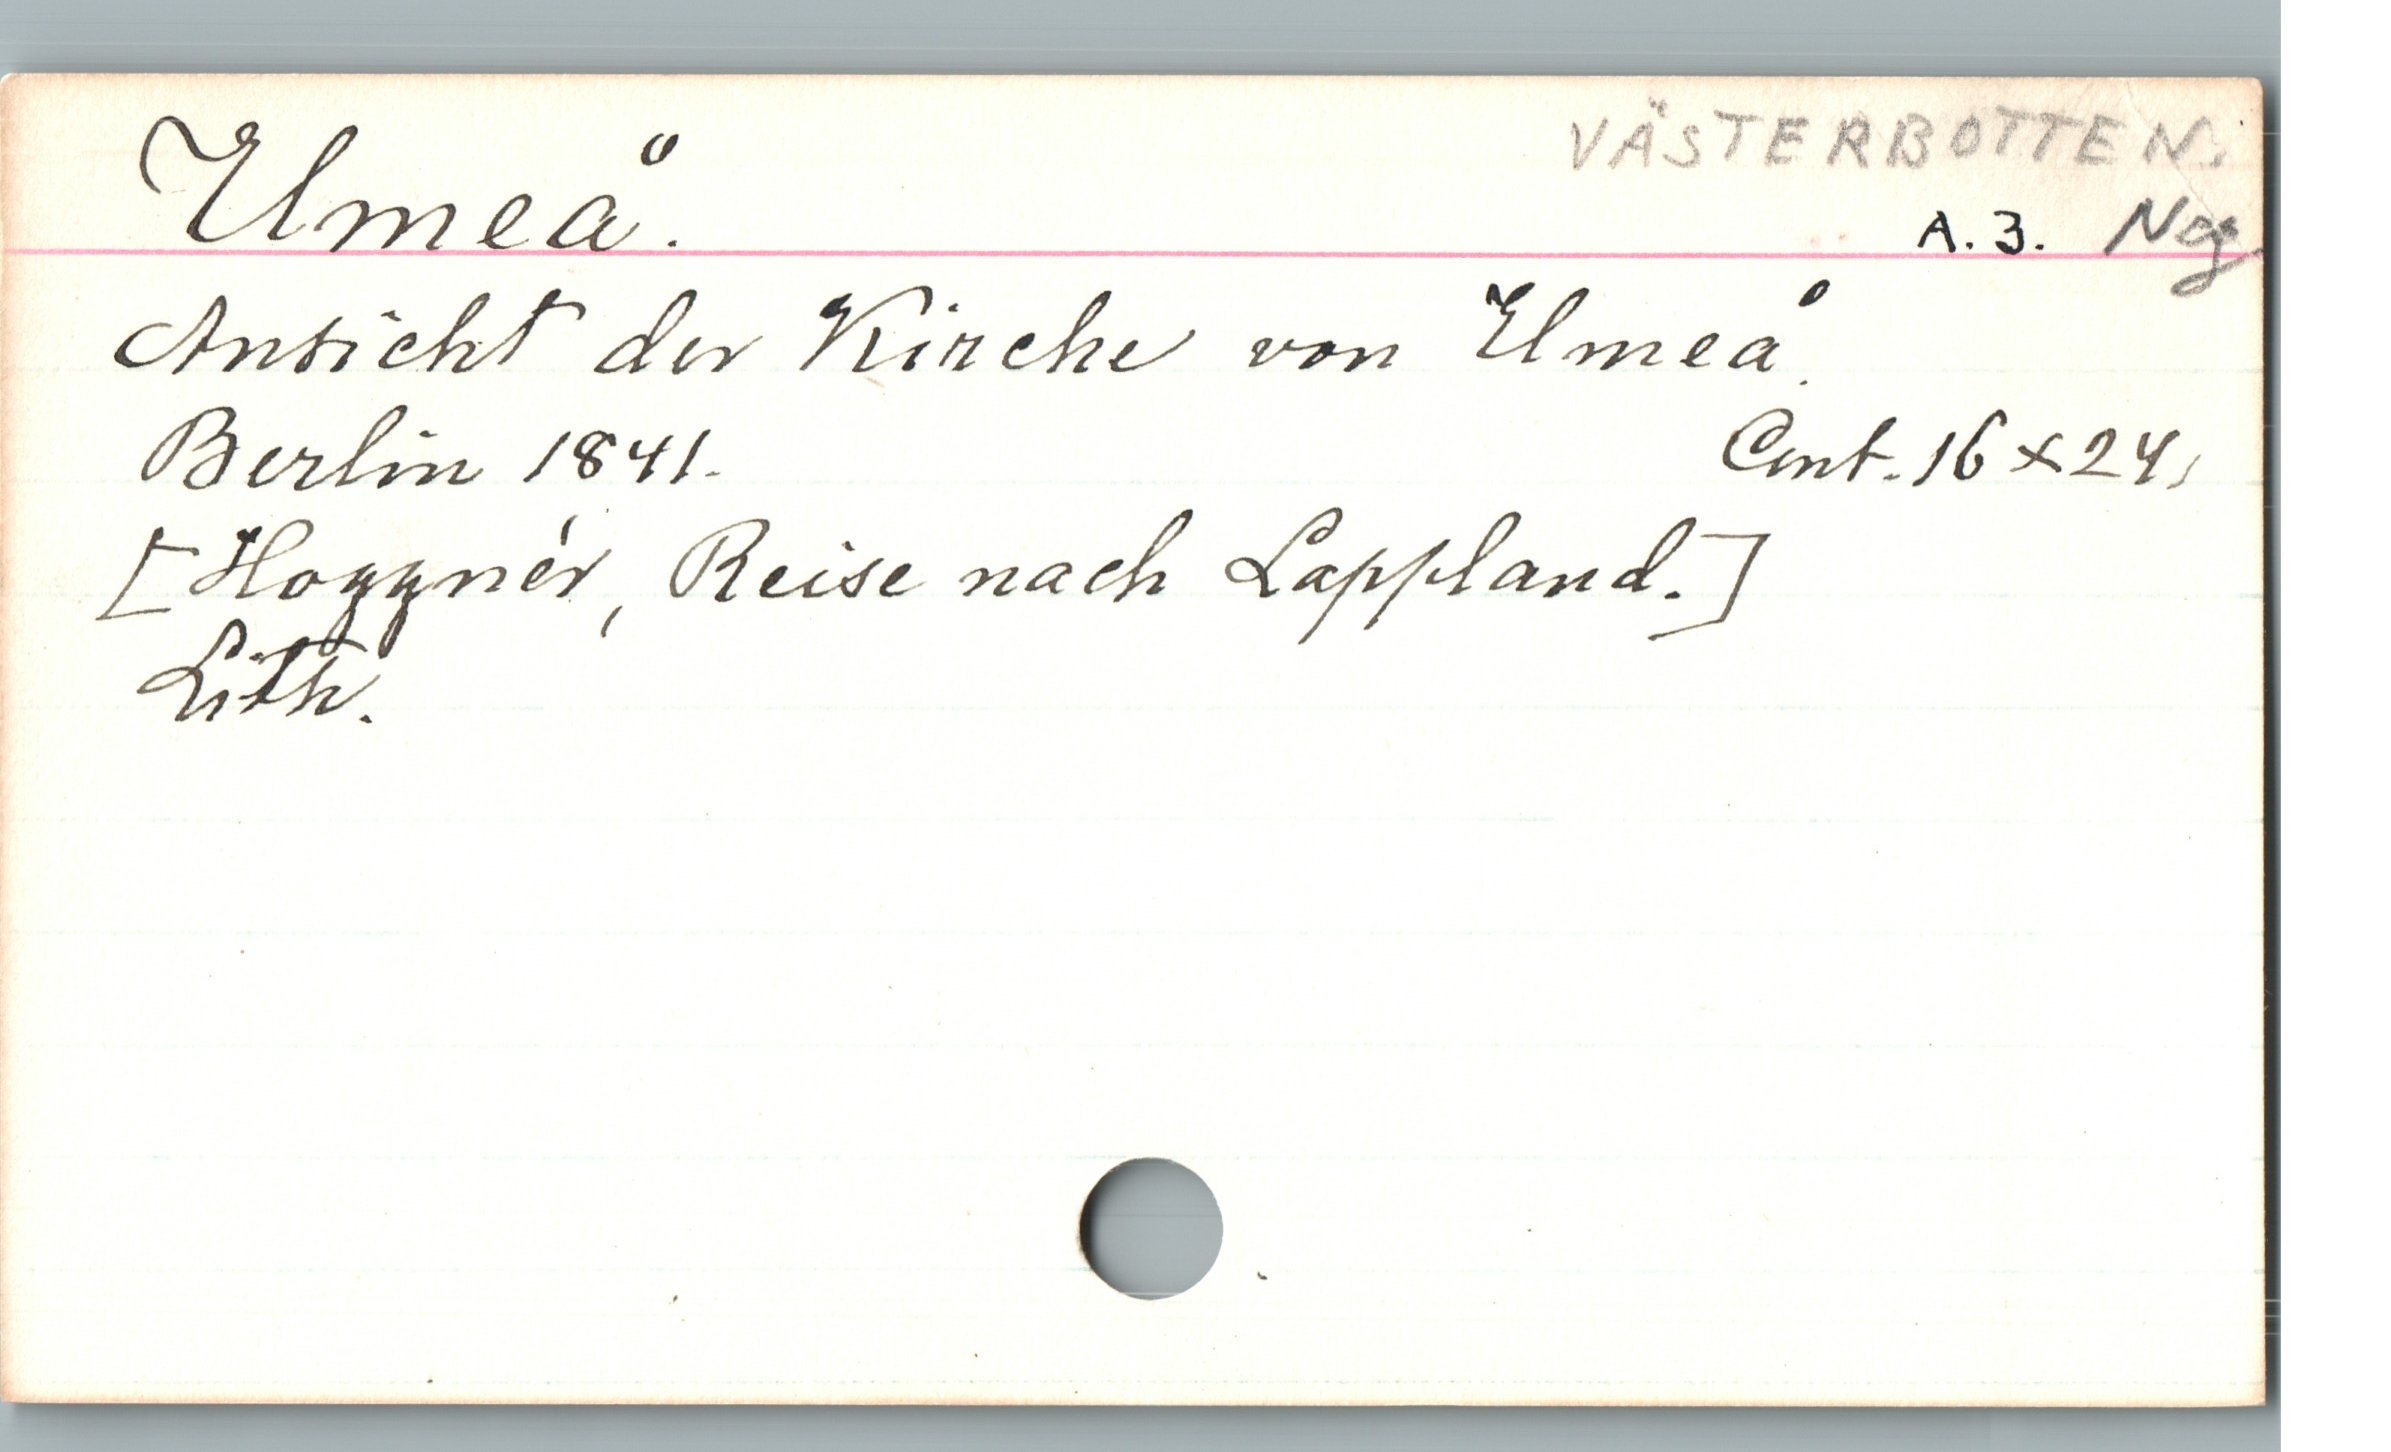 VÄSTERBOTTEN.
Umeå.
A. 3. Neg.
Ansicht der Kirche von Umeå.
Berlin 1841. Cent. 16 x 24,
[Hoggnér, Reise nach Lappland.]
Lith.